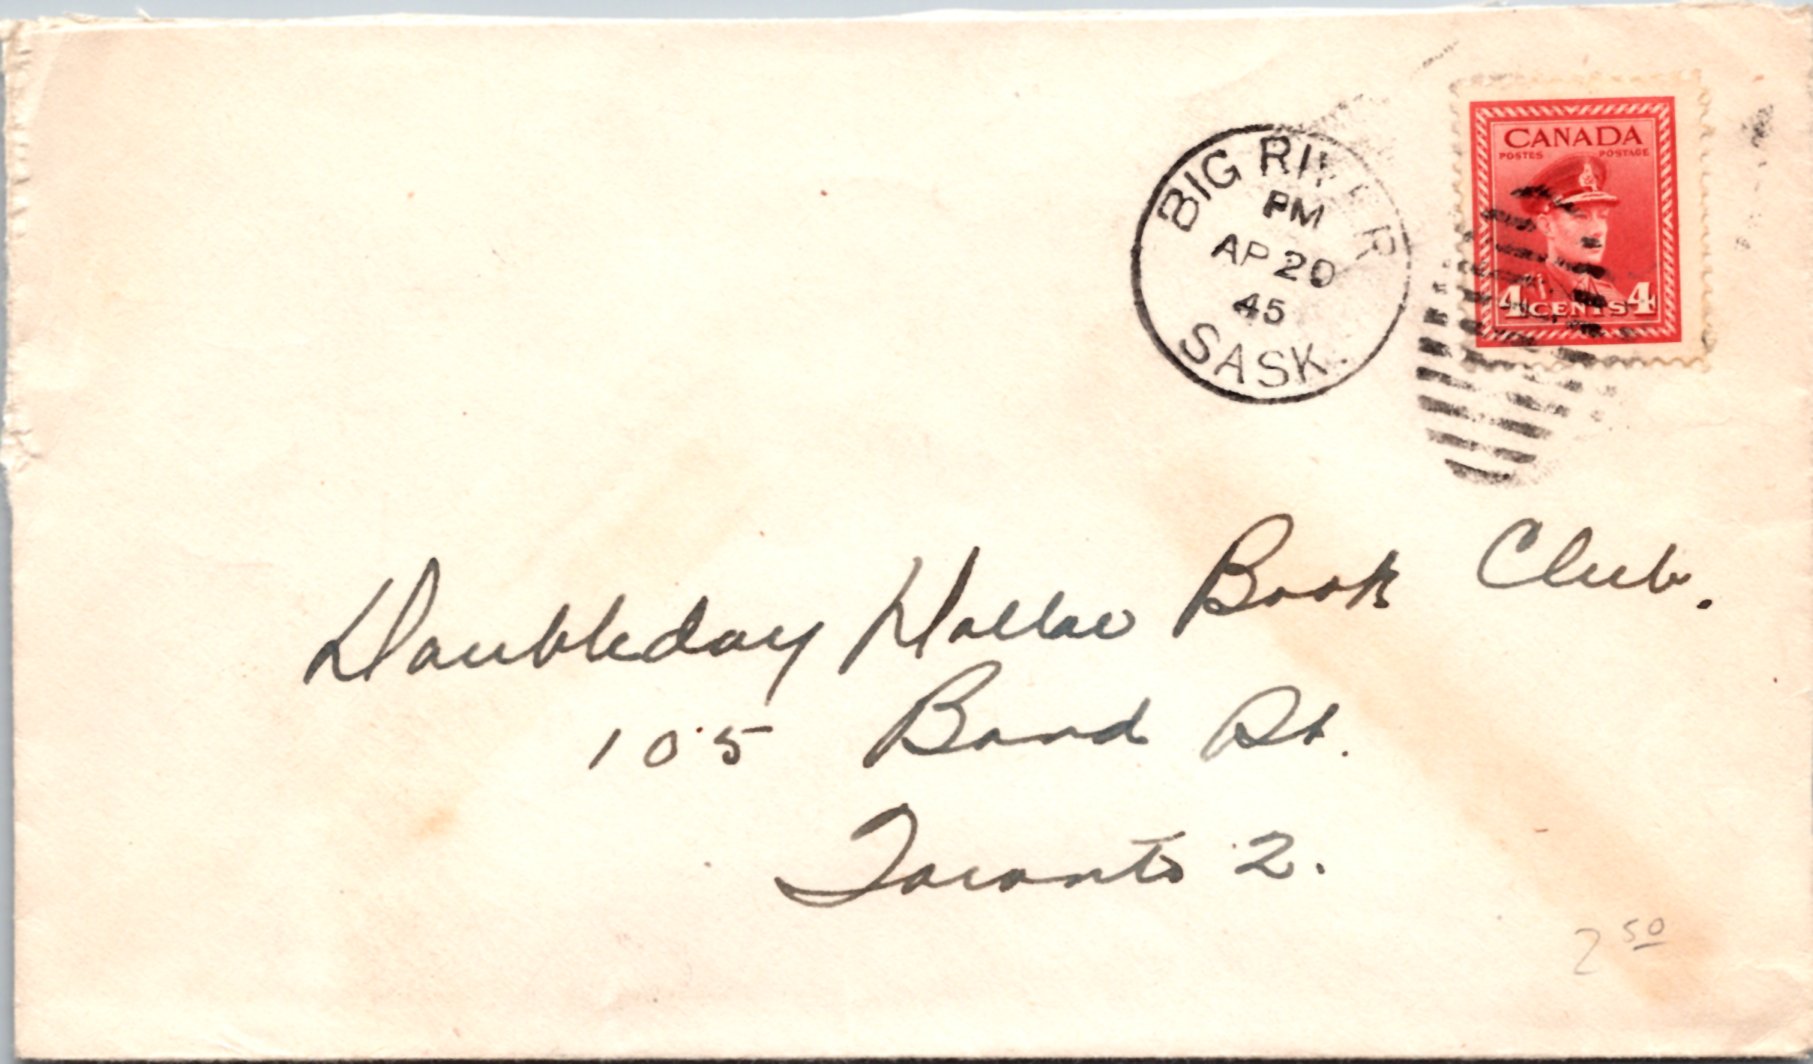 BIG RIVER
PM
AP 20
45
SASK.
CANADA
POSTES POSTAGE
4 CENTS 4
Doubleday Dollar Book Club.
105 Bond St.
Toronto 2.
2 50